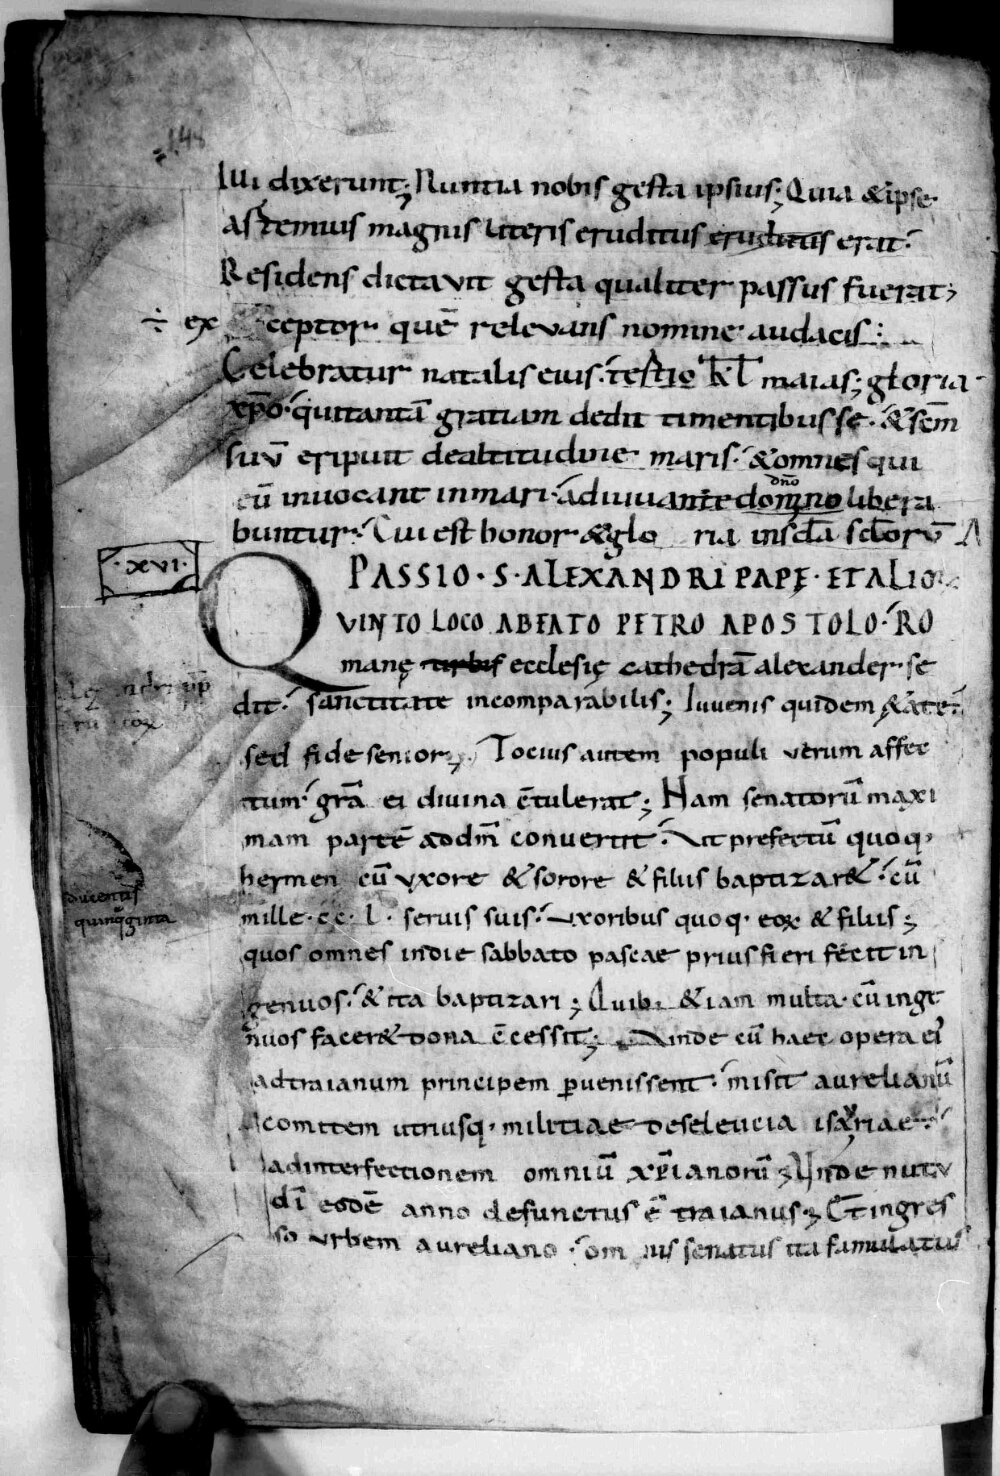 148
Illi dixerunt; Nuntia nobis gesta ipsius; Quia & ipse
astemius magnis literis eruditus eruditus erat.
Residens dictavit gesta qualiter passus fuerat;
÷ ex ceptor quē relevans nomine audacis:
Celebratur natalis eius kł maias; gloria
xp̄o quitantā gratiam dedit timentibus se. & sem̄
suū eripuit dealtitudine maris. & omnes qui
eū invocant in mari. adiuvante domino libera
dn̄o
buntur. Cui est honor & glo ria in scl̄a scl̄orū A
·XVI·
PASSIO·S·ALEXANDRI PAPĘ·ET ALIO
QVINTO LOCO ABEATO PETRO APOSTOLO·RO
manę urbis ecclesię cathedrā alexander se
dit. sanctitate incomparabilis; Iuvenis quidem
sed fide senior; Tocius autem populi verum affec
tum gr̄a ei divina c̄tulerat; Nam senatorū maxi
mam partē addn̄m convertit. Ut prefectū quoq·
hermen cū uxore & sorore & filiis baptizar&. cū
mille·cc·l· servis suis. uxoribus quoq· eoꝝ & filiis;
ducentis
quinquaginta
quos omnes in die sabbato pascae prius fieri fecit in
genuos. & ita baptizari; Quib· &iam multa cū inge
nuos facer& dona c̄cessit; Dinde cū haec opera ei
adtraianum principem ꝑvenissent. misit aurelianū
comitem utriusq· militiae deseleucia isauriae.
ad interfectionem omniū xp̄ianorū; Unde nutu
dī eodē anno defunctus ē traianus; Et ingres
so urbem aureliano. om nis senatus ita famulatus